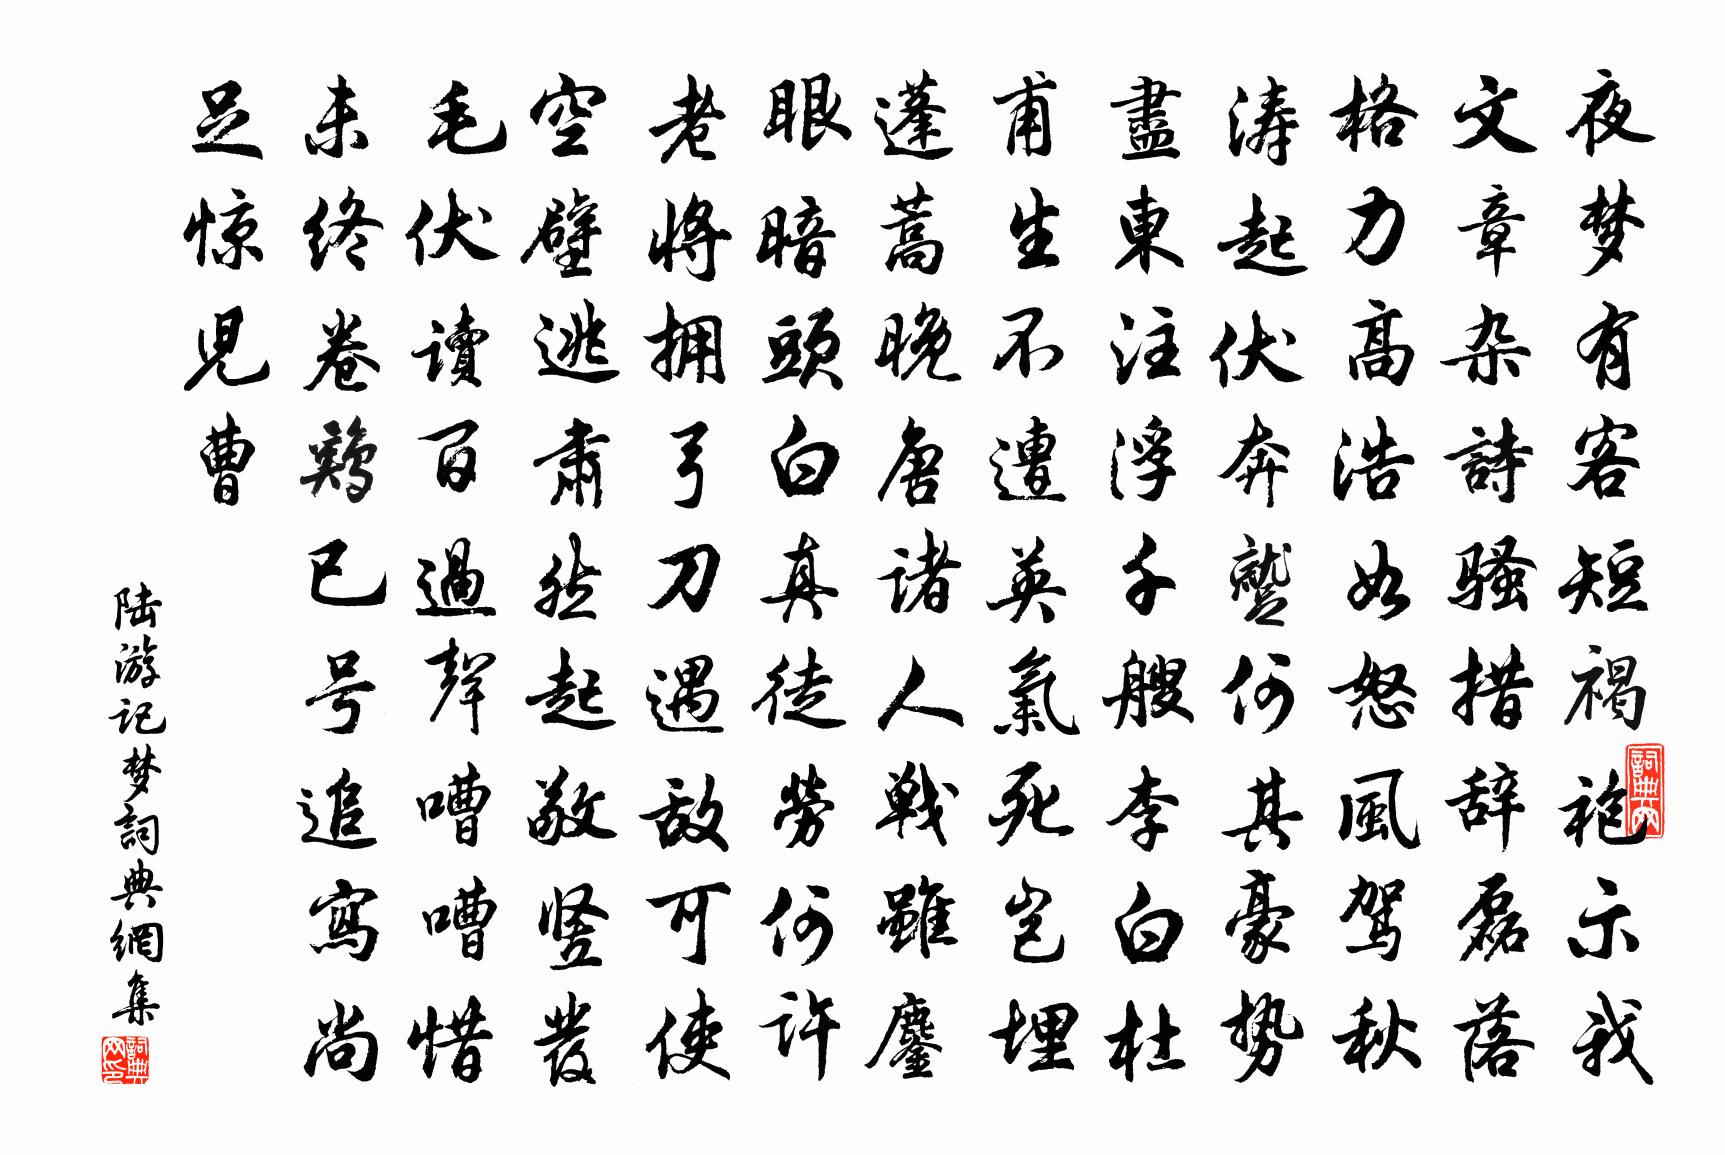 夜梦有客短褐袍示我
文章杂詩骚措辞磊落
格力高浩如怒風驾秋
涛起伏奔蹙何其豪势
盡東注浮千艘李白杜
甫生不遭英氣死岂埋
蓬蒿晚唐諸人戦雖鏖
眼暗頭白真徒勞何许
老将拥弓刀遇敌可使
空壁逃肃然起敬竖發
毛伏讀百過聲嘈嘈惜
未终卷鷄已号追寫尚
足惊児曹
陆游记梦詞典網集
詞典网
詞典网